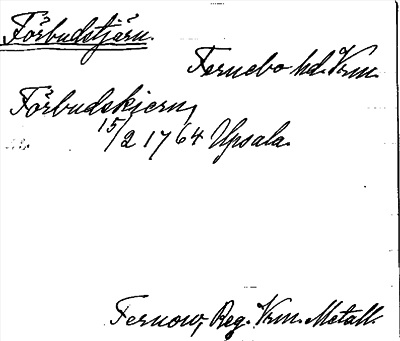 Förbudstjärn.
Fernebo hd. Vrm.
Förbudskiern,
15/2 1764 Upsala.
Fernow, Reg. Vrm. Metall.